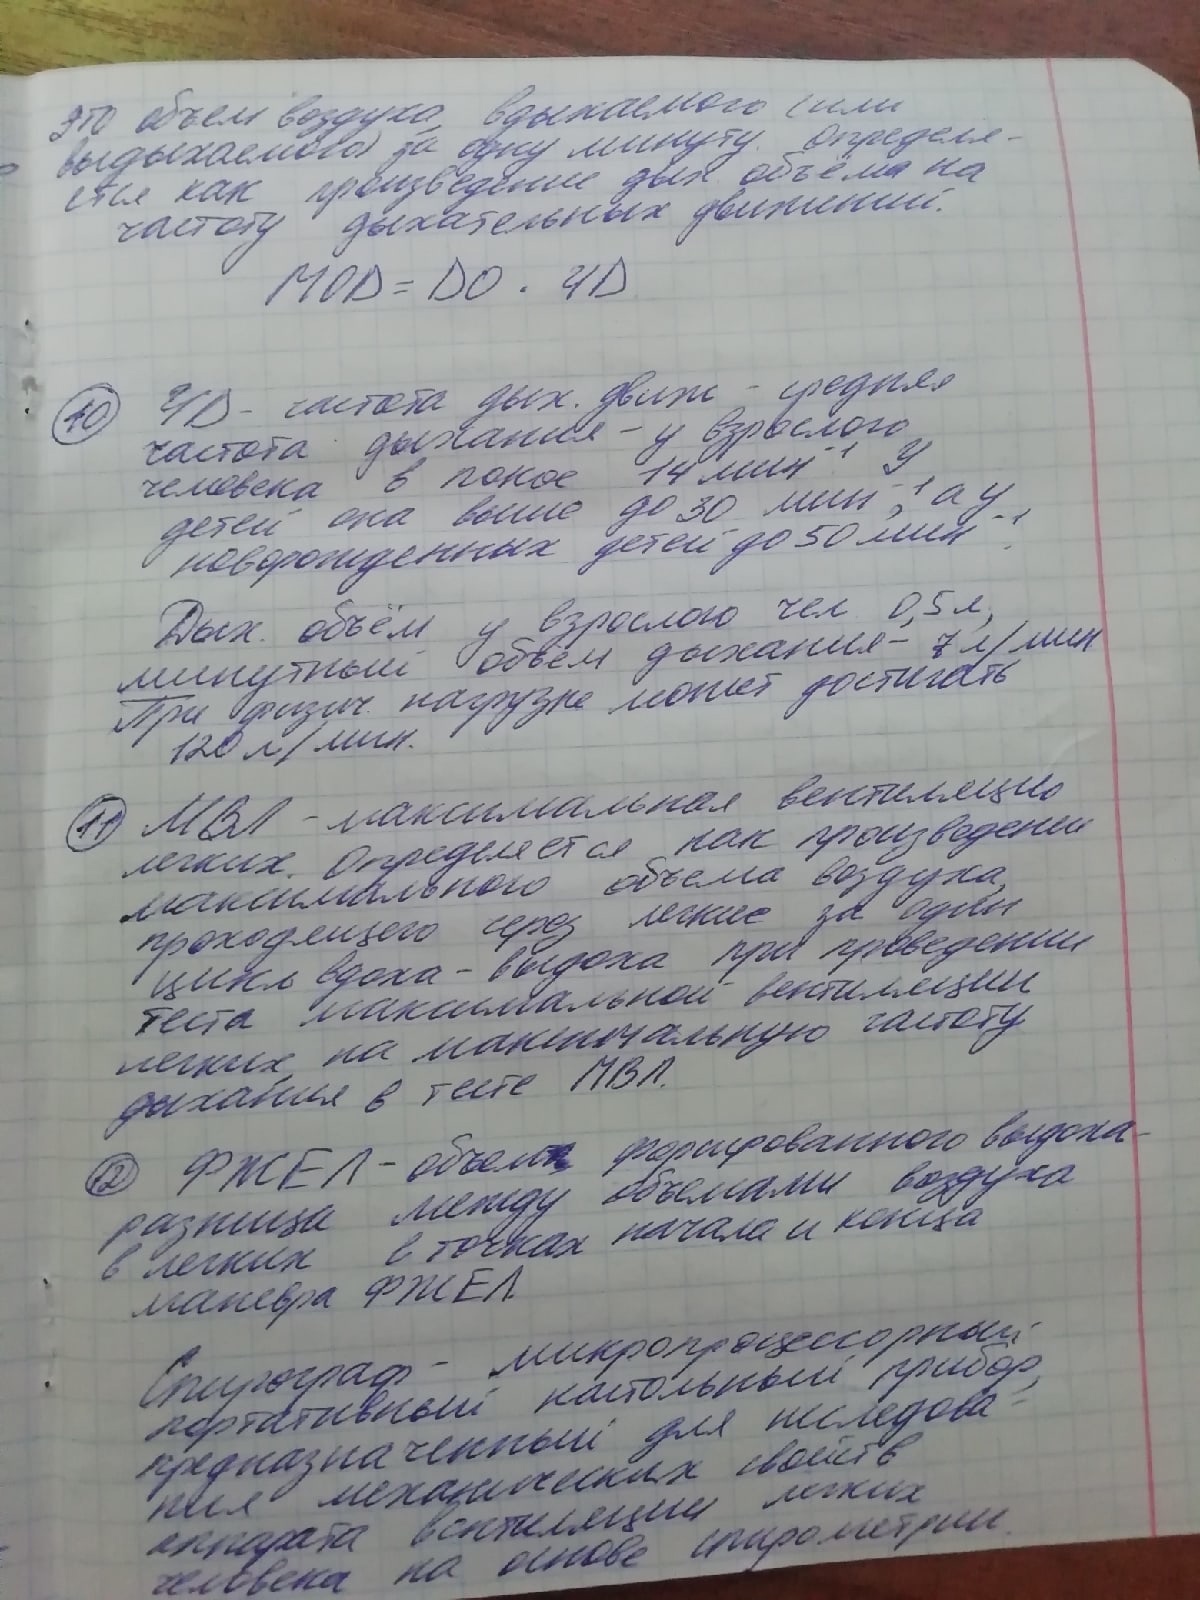 это объем воздуха, вдыхаемого (или
выдыхаемого) за одну минуту. Определя-
ется как произведение дых. объёма на
частоту дыхательных движений.
МОД = ДО · ЧД
10 ЧД - частота дых. движ - средняя
частота дыхания - у взрослого
человека в покое 14 мин⁻¹. У
детей она выше до 30 мин⁻¹, а у
новорожденных детей до 50 мин⁻¹.
Дых. объём у взрослого чел. 0,5 л,
минутный объём дыхания - 7 л/мин
При физич. нагрузке может достигать
120 л/мин.
11 МВЛ - максимальная вентиляцио
легких. Определяется как произведение
максимального объема воздуха,
проходящего через легкие за один
цикл вдоха - выдоха при проведении
теста максимальной вентиляции
легких, на максимальную частоту
дыхания в тесте МВЛ.
12 ФЖЕЛ - объем форсированного выдоха -
разница между объемами воздуха
в легких в точках начала и конца
маневра ФЖЕЛ.
Спирограф - микропроцессорный
портативный настольный прибор,
предназначенный для исследова-
ния механических свойств
аппарата вентиляции легких
человека на основе спирометрии.